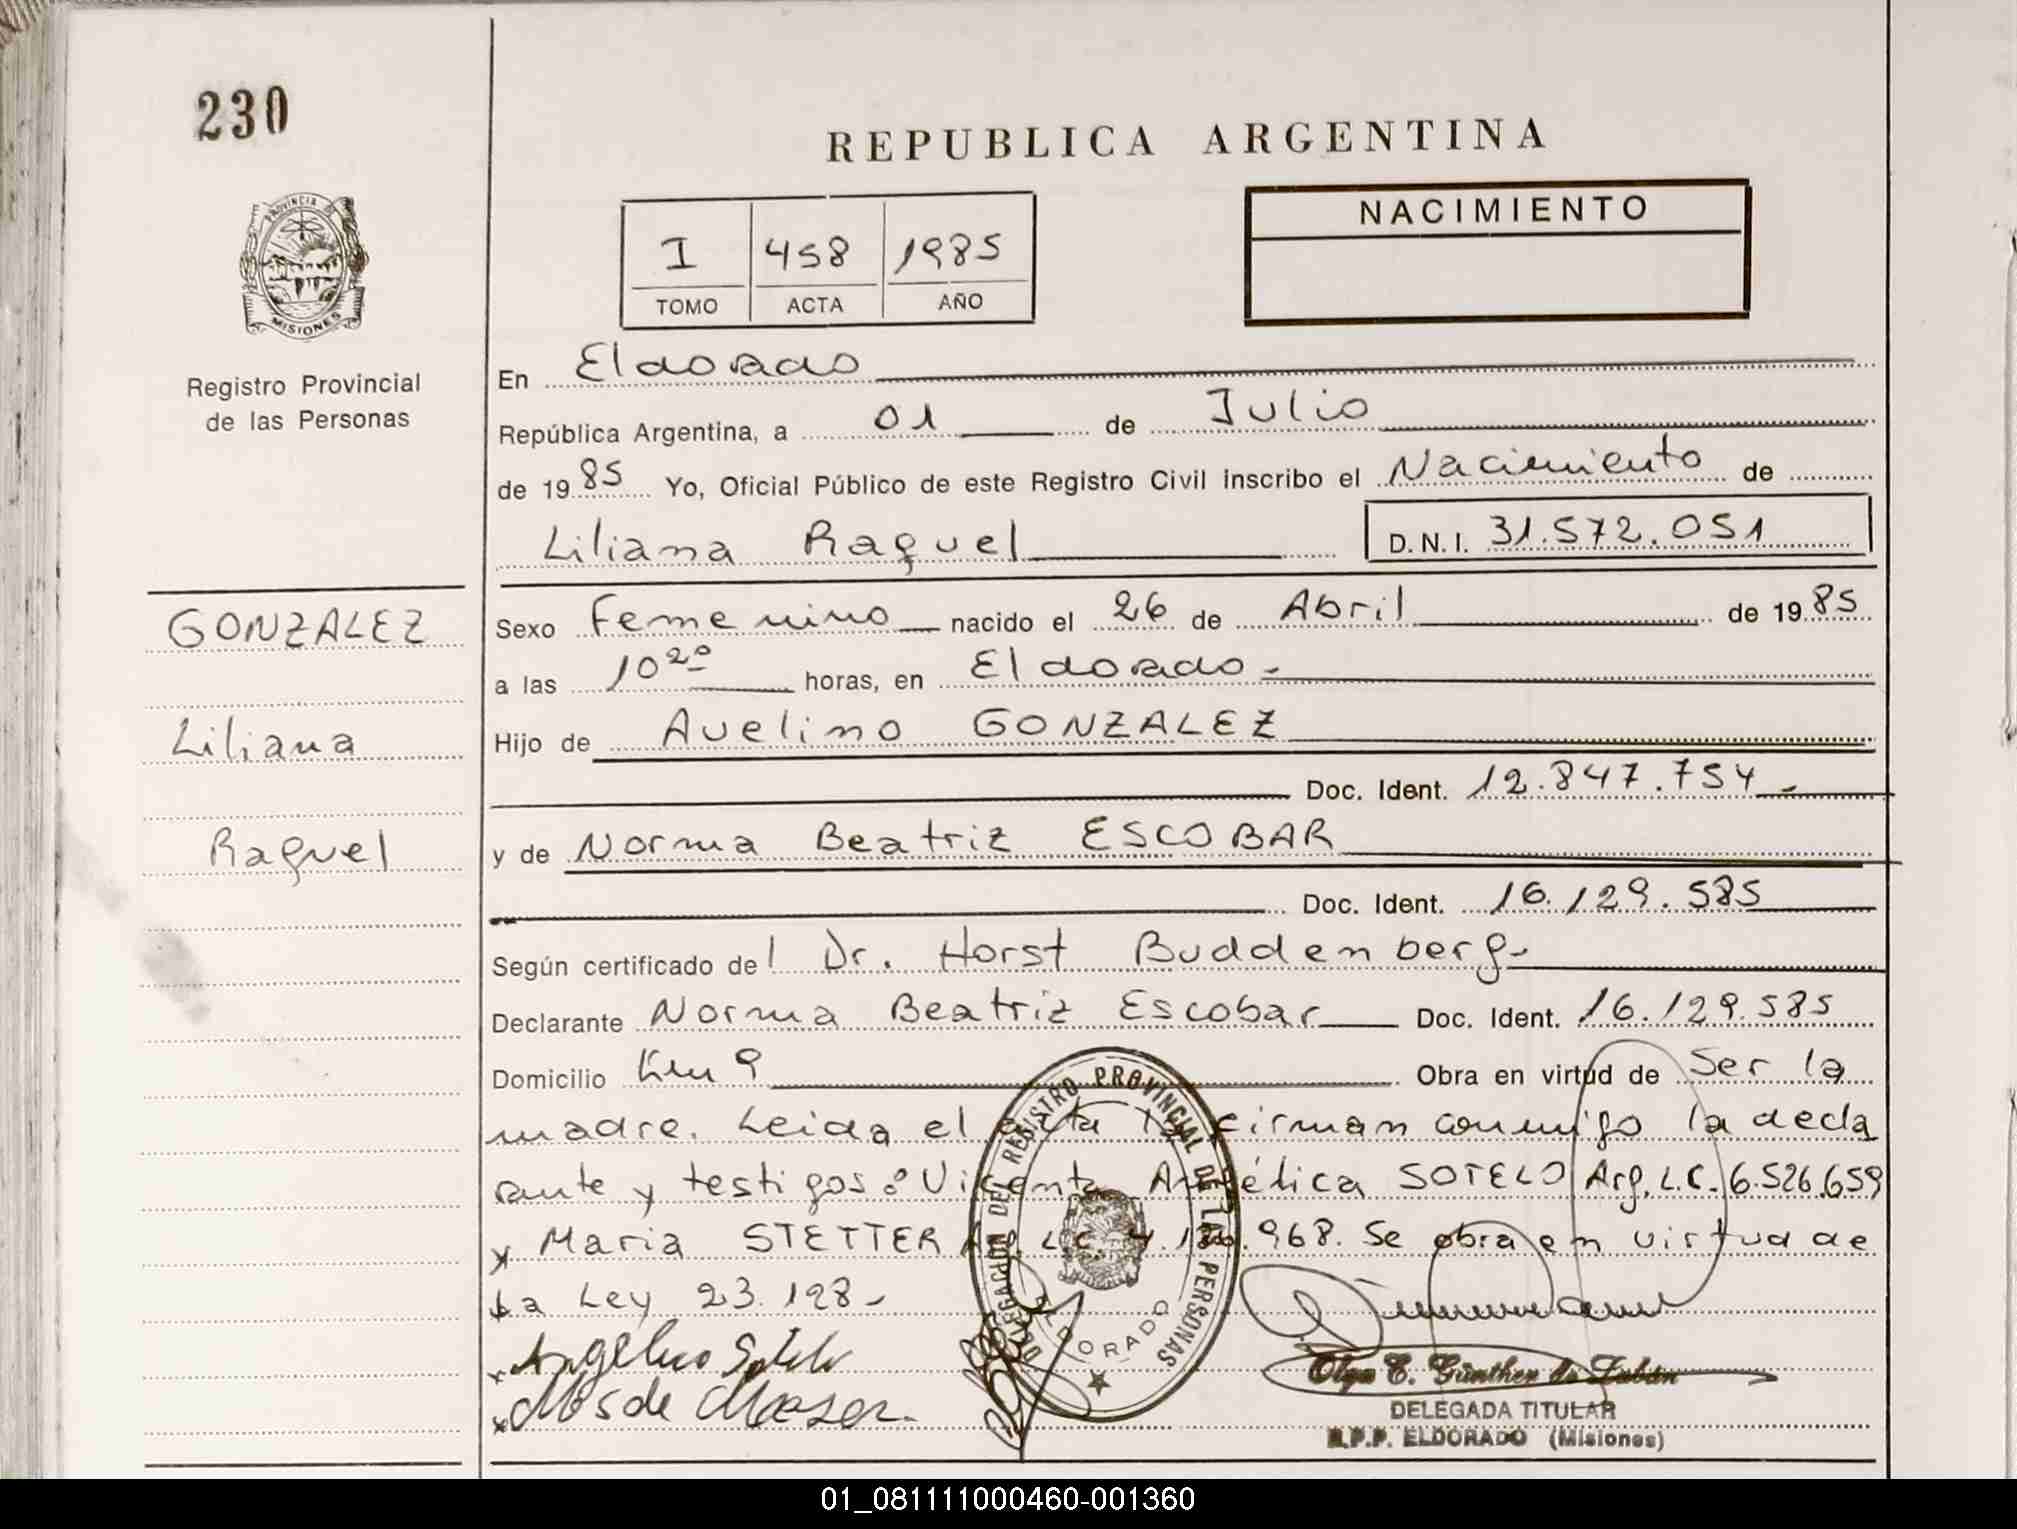 230
REPUBLICA ARGENTINA
PROVINCIA DE
MISIONES
Registro Provincial
de las Personas
I 458 1985
TOMO ACTA AÑO
NACIMIENTO
En Eldorado
República Argentina, a 01 de Julio
de 1985 Yo, Oficial Público de este Registro Civil inscribo el Nacimiento de
Liliana Raquel D.N.I. 31.572.051
GONZALEZ
Liliana
Raquel
Sexo Femenino nacido el 26 de Abril de 1985
a las 10 20 horas, en Eldorado.-
Hijo de Avelino GONZALEZ
Doc. Ident. 12.847.754.-
y de Norma Beatriz ESCOBAR
Doc. Ident. 16.129.585
Según certificado del Dr. Horst Buddenberg.-
Declarante Norma Beatriz Escobar Doc. Ident. 16.129.585
Domicilio Km 9 Obra en virtud de Ser la
madre. Leida el acta la firman conmigo la decla
rante y testigos: Vicenta Angélica SOTELO Arg. L.C. 6.526.659
y Maria STETTER Arg. L.C. 968. Se obra en virtud de
La Ley 23.128.-
DELEGACION DEL REGISTRO PROVINCIAL DE LAS PERSONAS
ELDORADO
Angélica Sotelo
Olga E. Günther de Zubán
DELEGADA TITULAR
R.P.P. ELDORADO (Misiones)
01_081111000460-001360